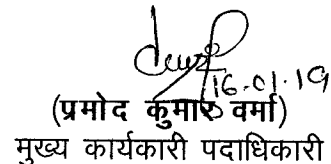 16.01.19
(प्रमोद कुमार वर्मा)
मुख्य कार्यकारी पदाधिकारी